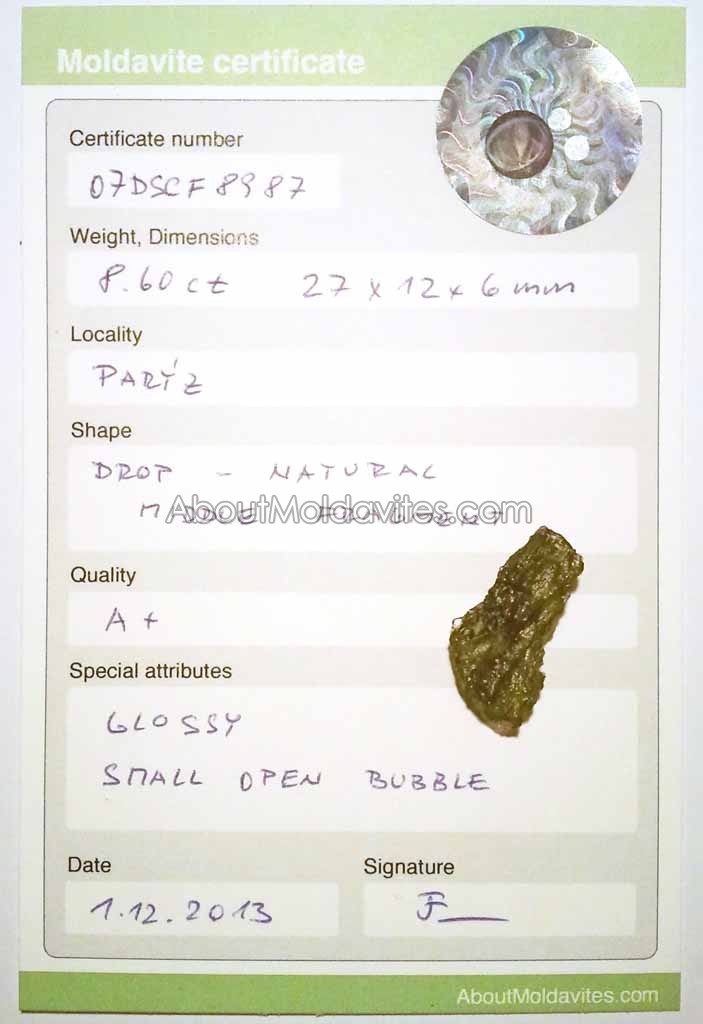 Moldavite certificate
Certificate number
07DSCF8987
Weight, Dimensions
8.60 ct 27 x 12 x 6 mm
Locality
PARÍZ
Shape
DROP - NATURAL
MIDDLE FRAGMENT
AboutMoldavites.com
Quality
A+
Special attributes
GLOSSY
SMALL OPEN BUBBLE
Date Signature
1.12.2013
AboutMoldavites.com